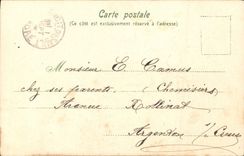 Carte postale
(Ce côté est exclusivement réservé à l'adresse)
Monsieur E. Camus
chez ses parents (Chemisiers)
Avenue Rollinat
Argenton s/ Creuse